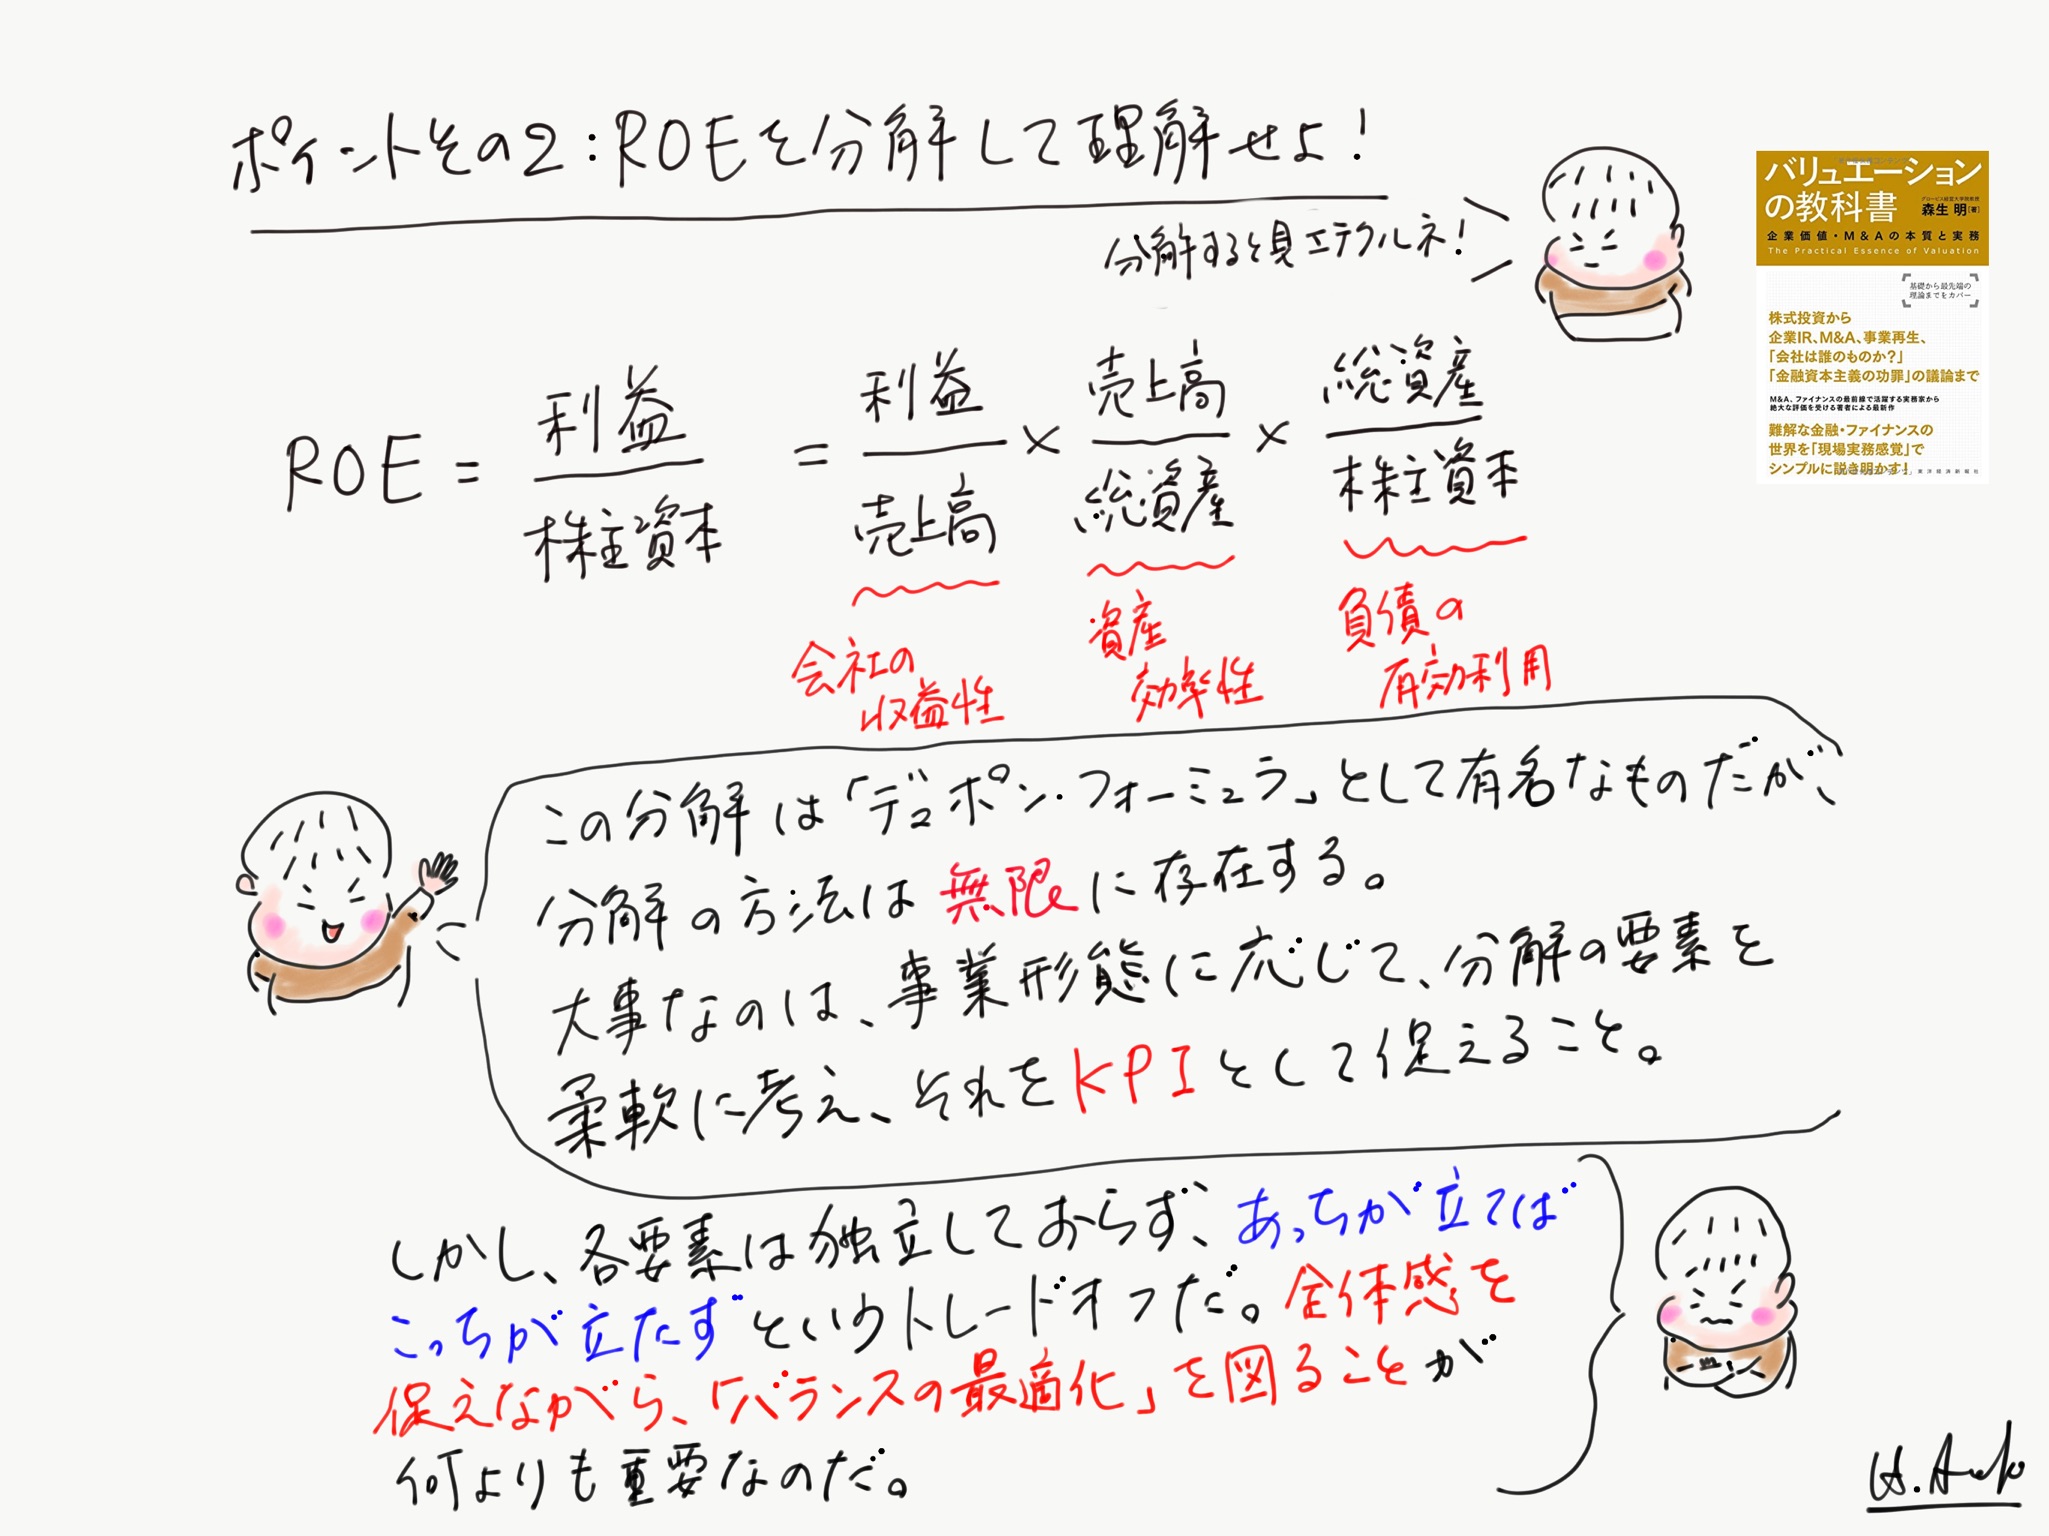 ポイントその2:ROEを分解して理解せよ!
分解すると見エテクルネ!
バリュエーション
の教科書
グロービス経営大学院教授
森生 明[著]
企業価値・M&Aの本質と実務
The Practical Essence of Valuation
基礎から最先端の
理論までをカバー
株式投資から
企業IR、M&A、事業再生、
「会社は誰のものか?」
「金融資本主義の功罪」の議論まで
M&A、ファイナンスの最前線で活躍する実務家から
絶大な評価を受ける著者による最新作
難解な金融・ファイナンスの
世界を「現場実務感覚」で
シンプルに説き明かす!
東洋経済新報社
ROE = 利益 / 株主資本 = 利益 / 売上高 × 売上高 / 総資産 × 総資産 / 株主資本
会社の
収益性
資産
効率性
負債の
有効利用
この分解は「デュポン・フォーミュラ」として有名なものだが、
分解の方法は無限に存在する。
大事なのは、事業形態に応じて、分解の要素を
柔軟に考え、それをKPIとして促えること。
しかし、各要素は独立しておらず、あっちが立てば
こっちが立たずというトレードオフだ。全体感を
促えながら、「バランスの最適化」を図ることが
何よりも重要なのだ。